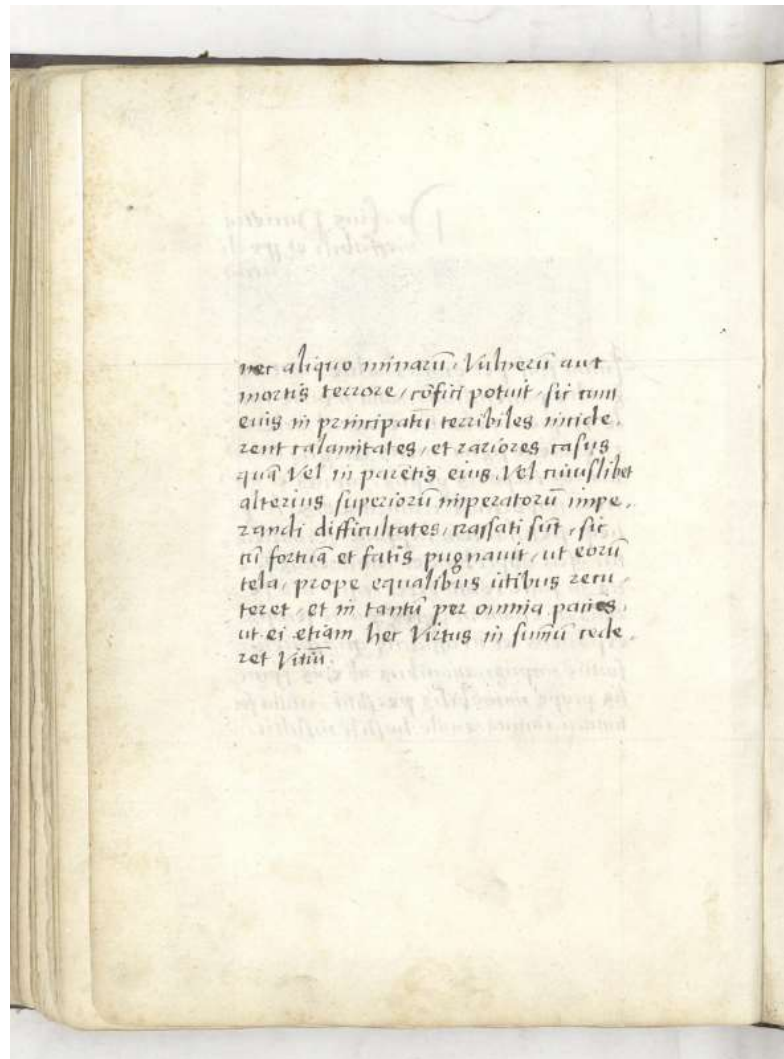 nec aliquo minarū, Vulnerū aut
mortis terrore, cōfici potuit, sic cum
eius in principatū terribiles incide,
rent calamitates, et rariores casus
quā Vel in parētis eius, Vel cuiuslibet
alterius superiorū imperatorū impe,
randi difficultates, crassati sūt, sic
cū fortuā et fatis pugnauit, ut eorū
tela, prope equalibus ictibus recu,
teret, et in tantū per omnia paciēs,
ut ei etiam hec Virtus in sumū cede,
ret Vitiū.